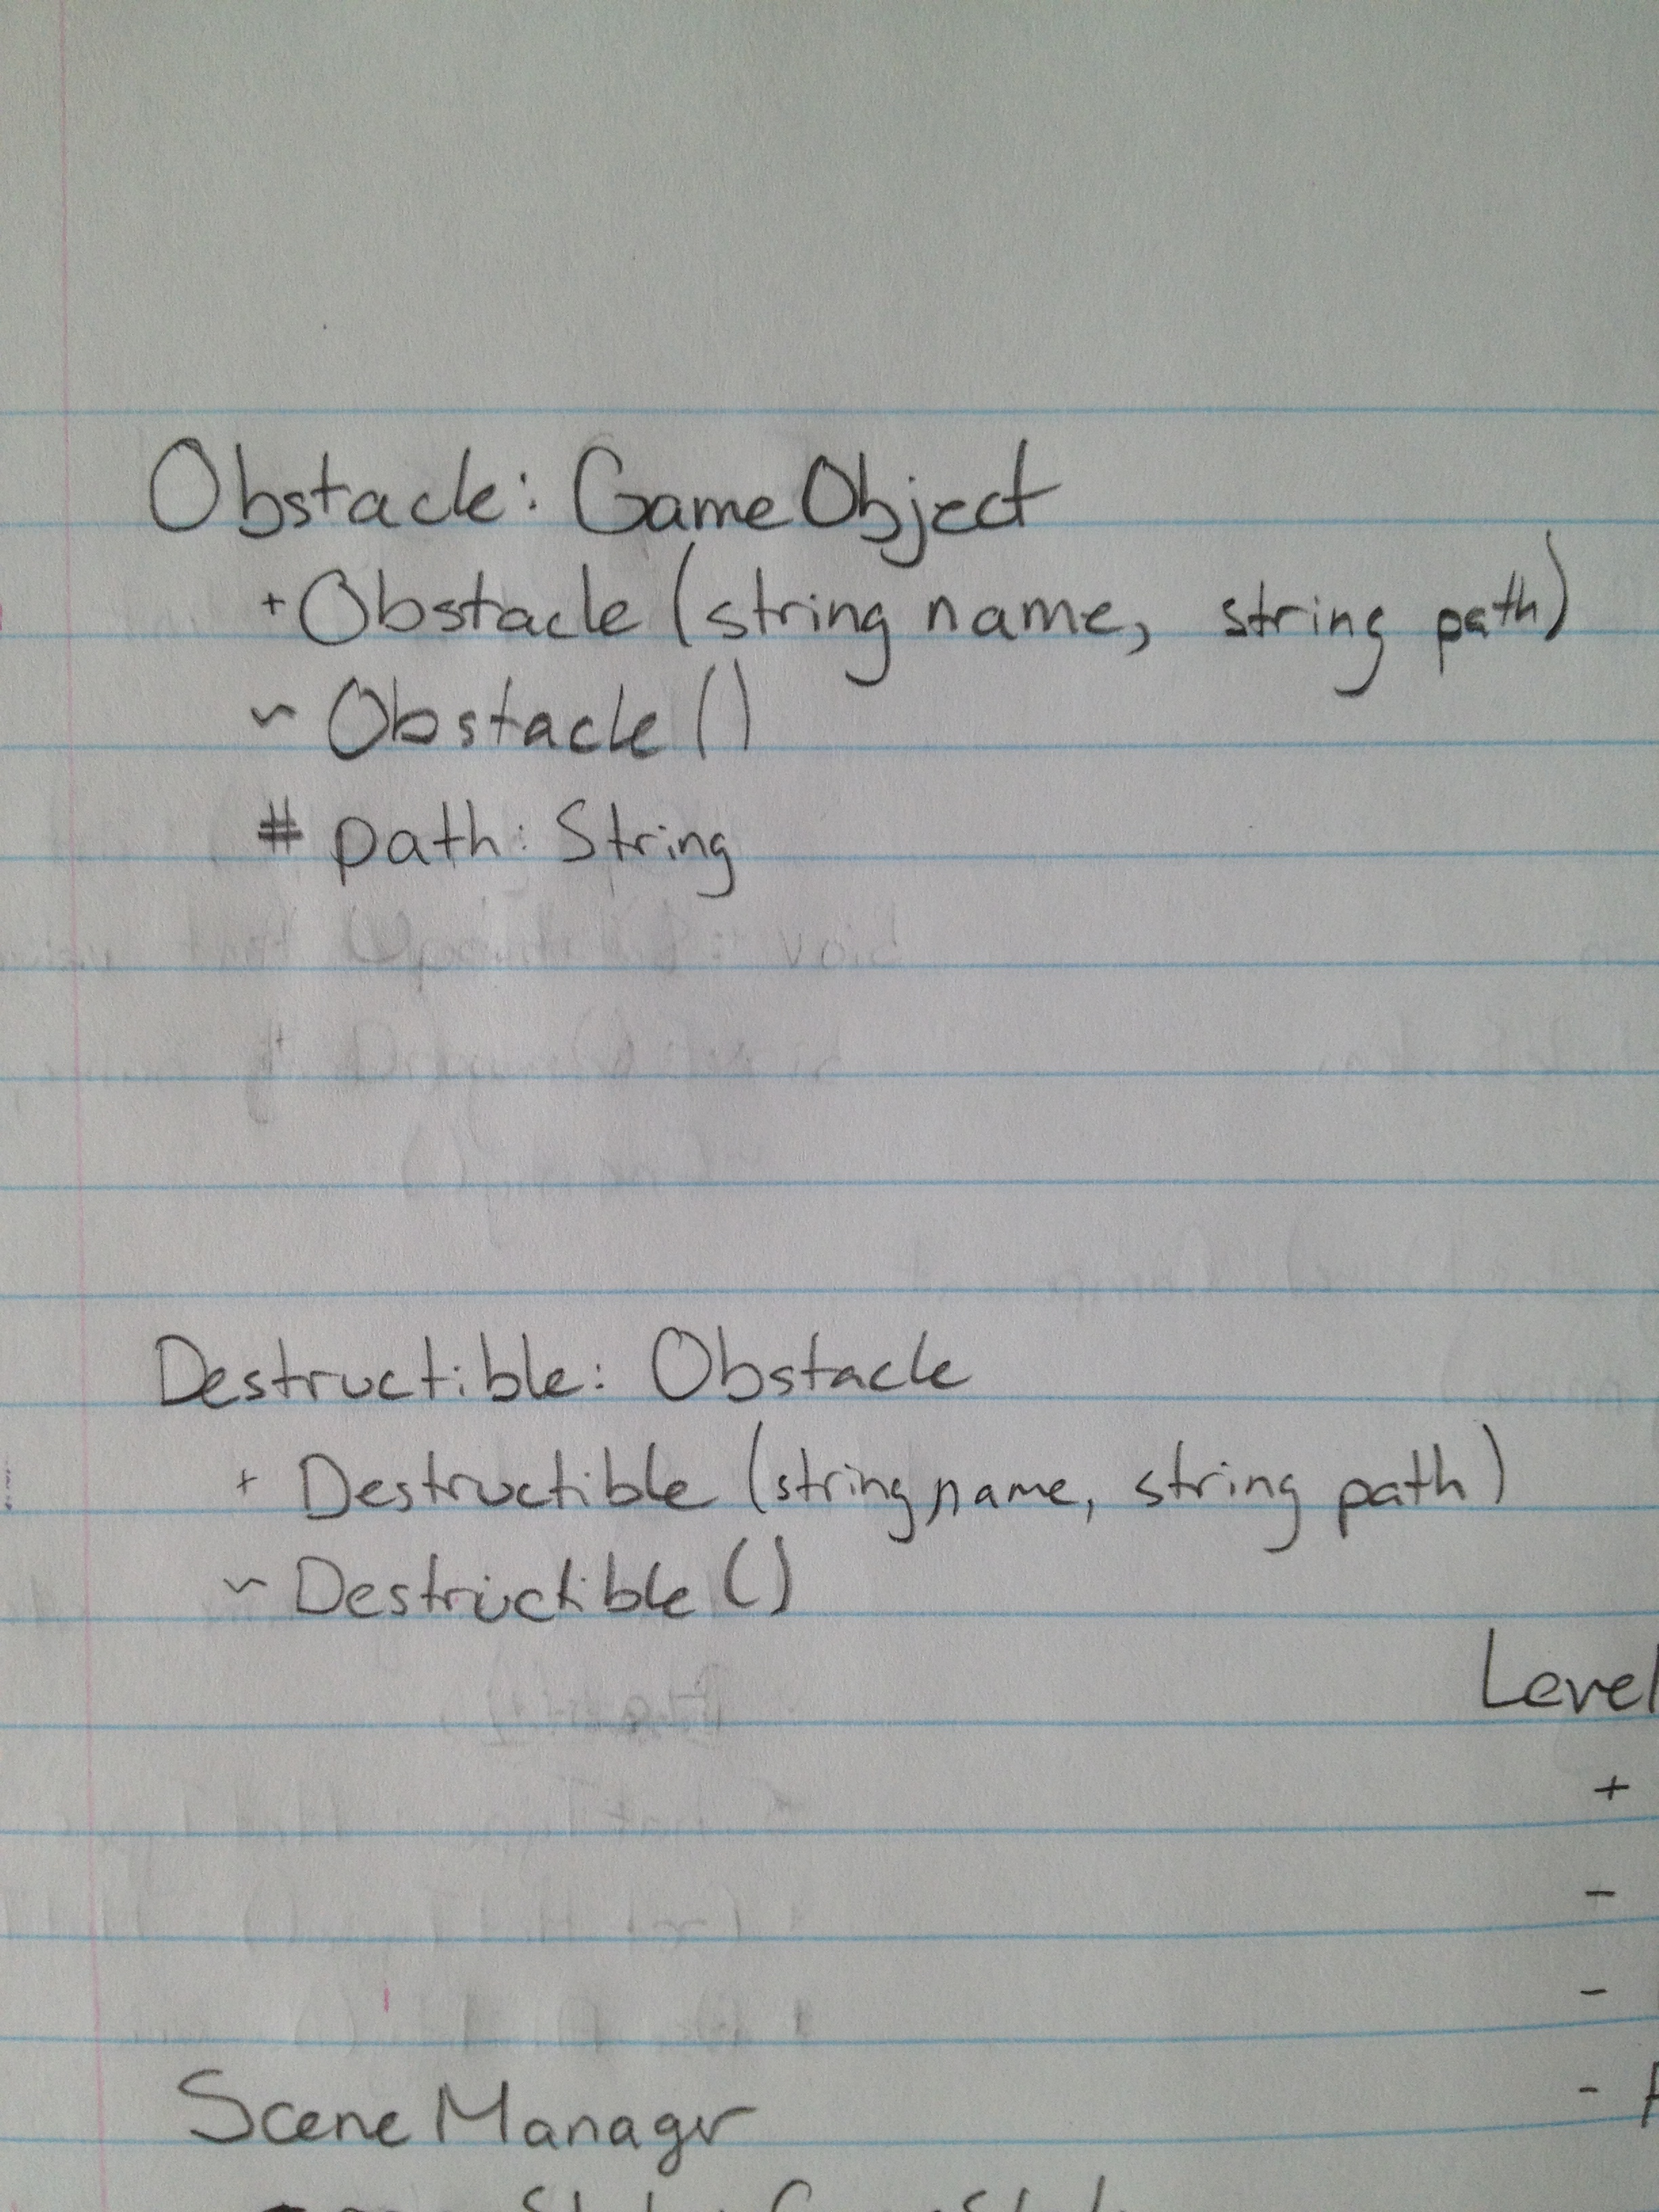 Obstacle: GameObject
+ Obstacle (string name, string path)
~ Obstacle ()
# path: String
Destructible: Obstacle
+ Destructible (string name, string path)
~ Destructible ()
Level
+
-
-
-
Scene Managr